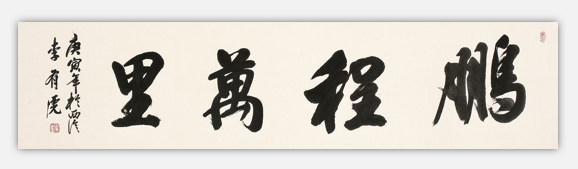 鵬程萬里
庚寅年於西泠
李有虎